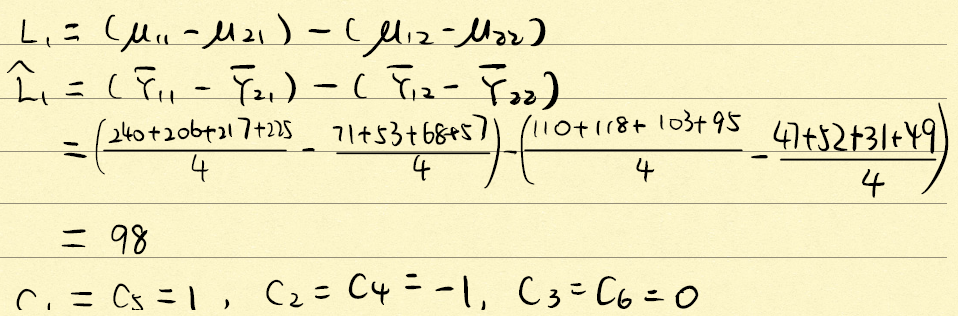 L₁ = (μ₁₁ - μ₂₁) - (μ₁₂ - μ₂₂)
L̂₁ = (Ȳ₁₁ - Ȳ₂₁) - (Ȳ₁₂ - Ȳ₂₂)
= ((240+206+217+225)/4 - (71+53+68+57)/4) - ((110+118+103+95)/4 - (47+52+31+49)/4)
= 98
C₁ = C₅ = 1, C₂ = C₄ = -1, C₃ = C₆ = 0